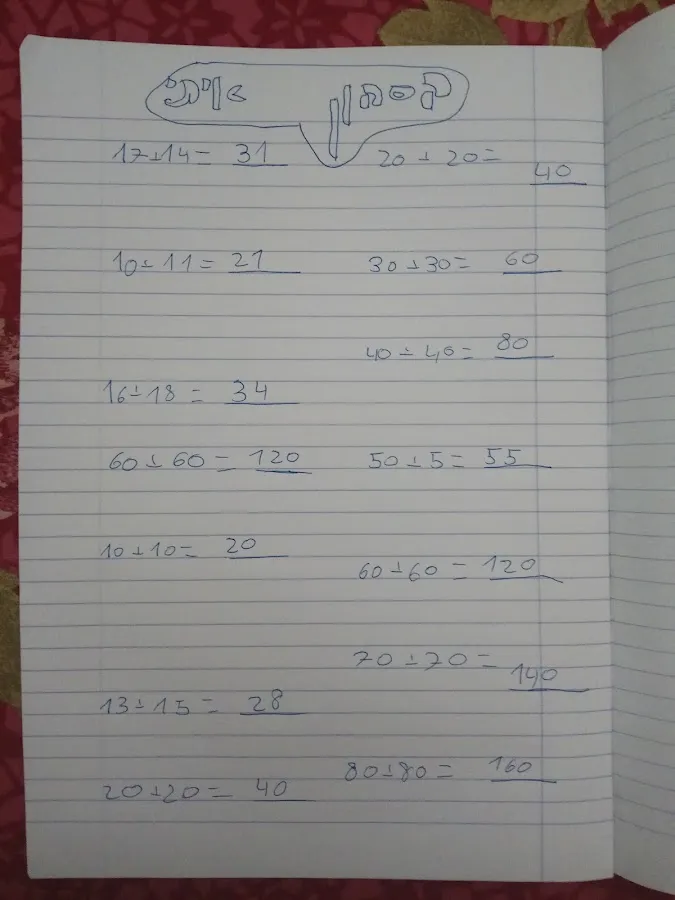 17+14= 31
20 + 20= 40
10+ 11= 21
30 +30= 60
40 + 40= 80
16+18 = 34
60 + 60 = 120
50 + 5= 55
10 + 10= 20
60 +60 = 120
70 + 70 = 140
13+15 = 28
80+80 = 160
20 +20 = 40